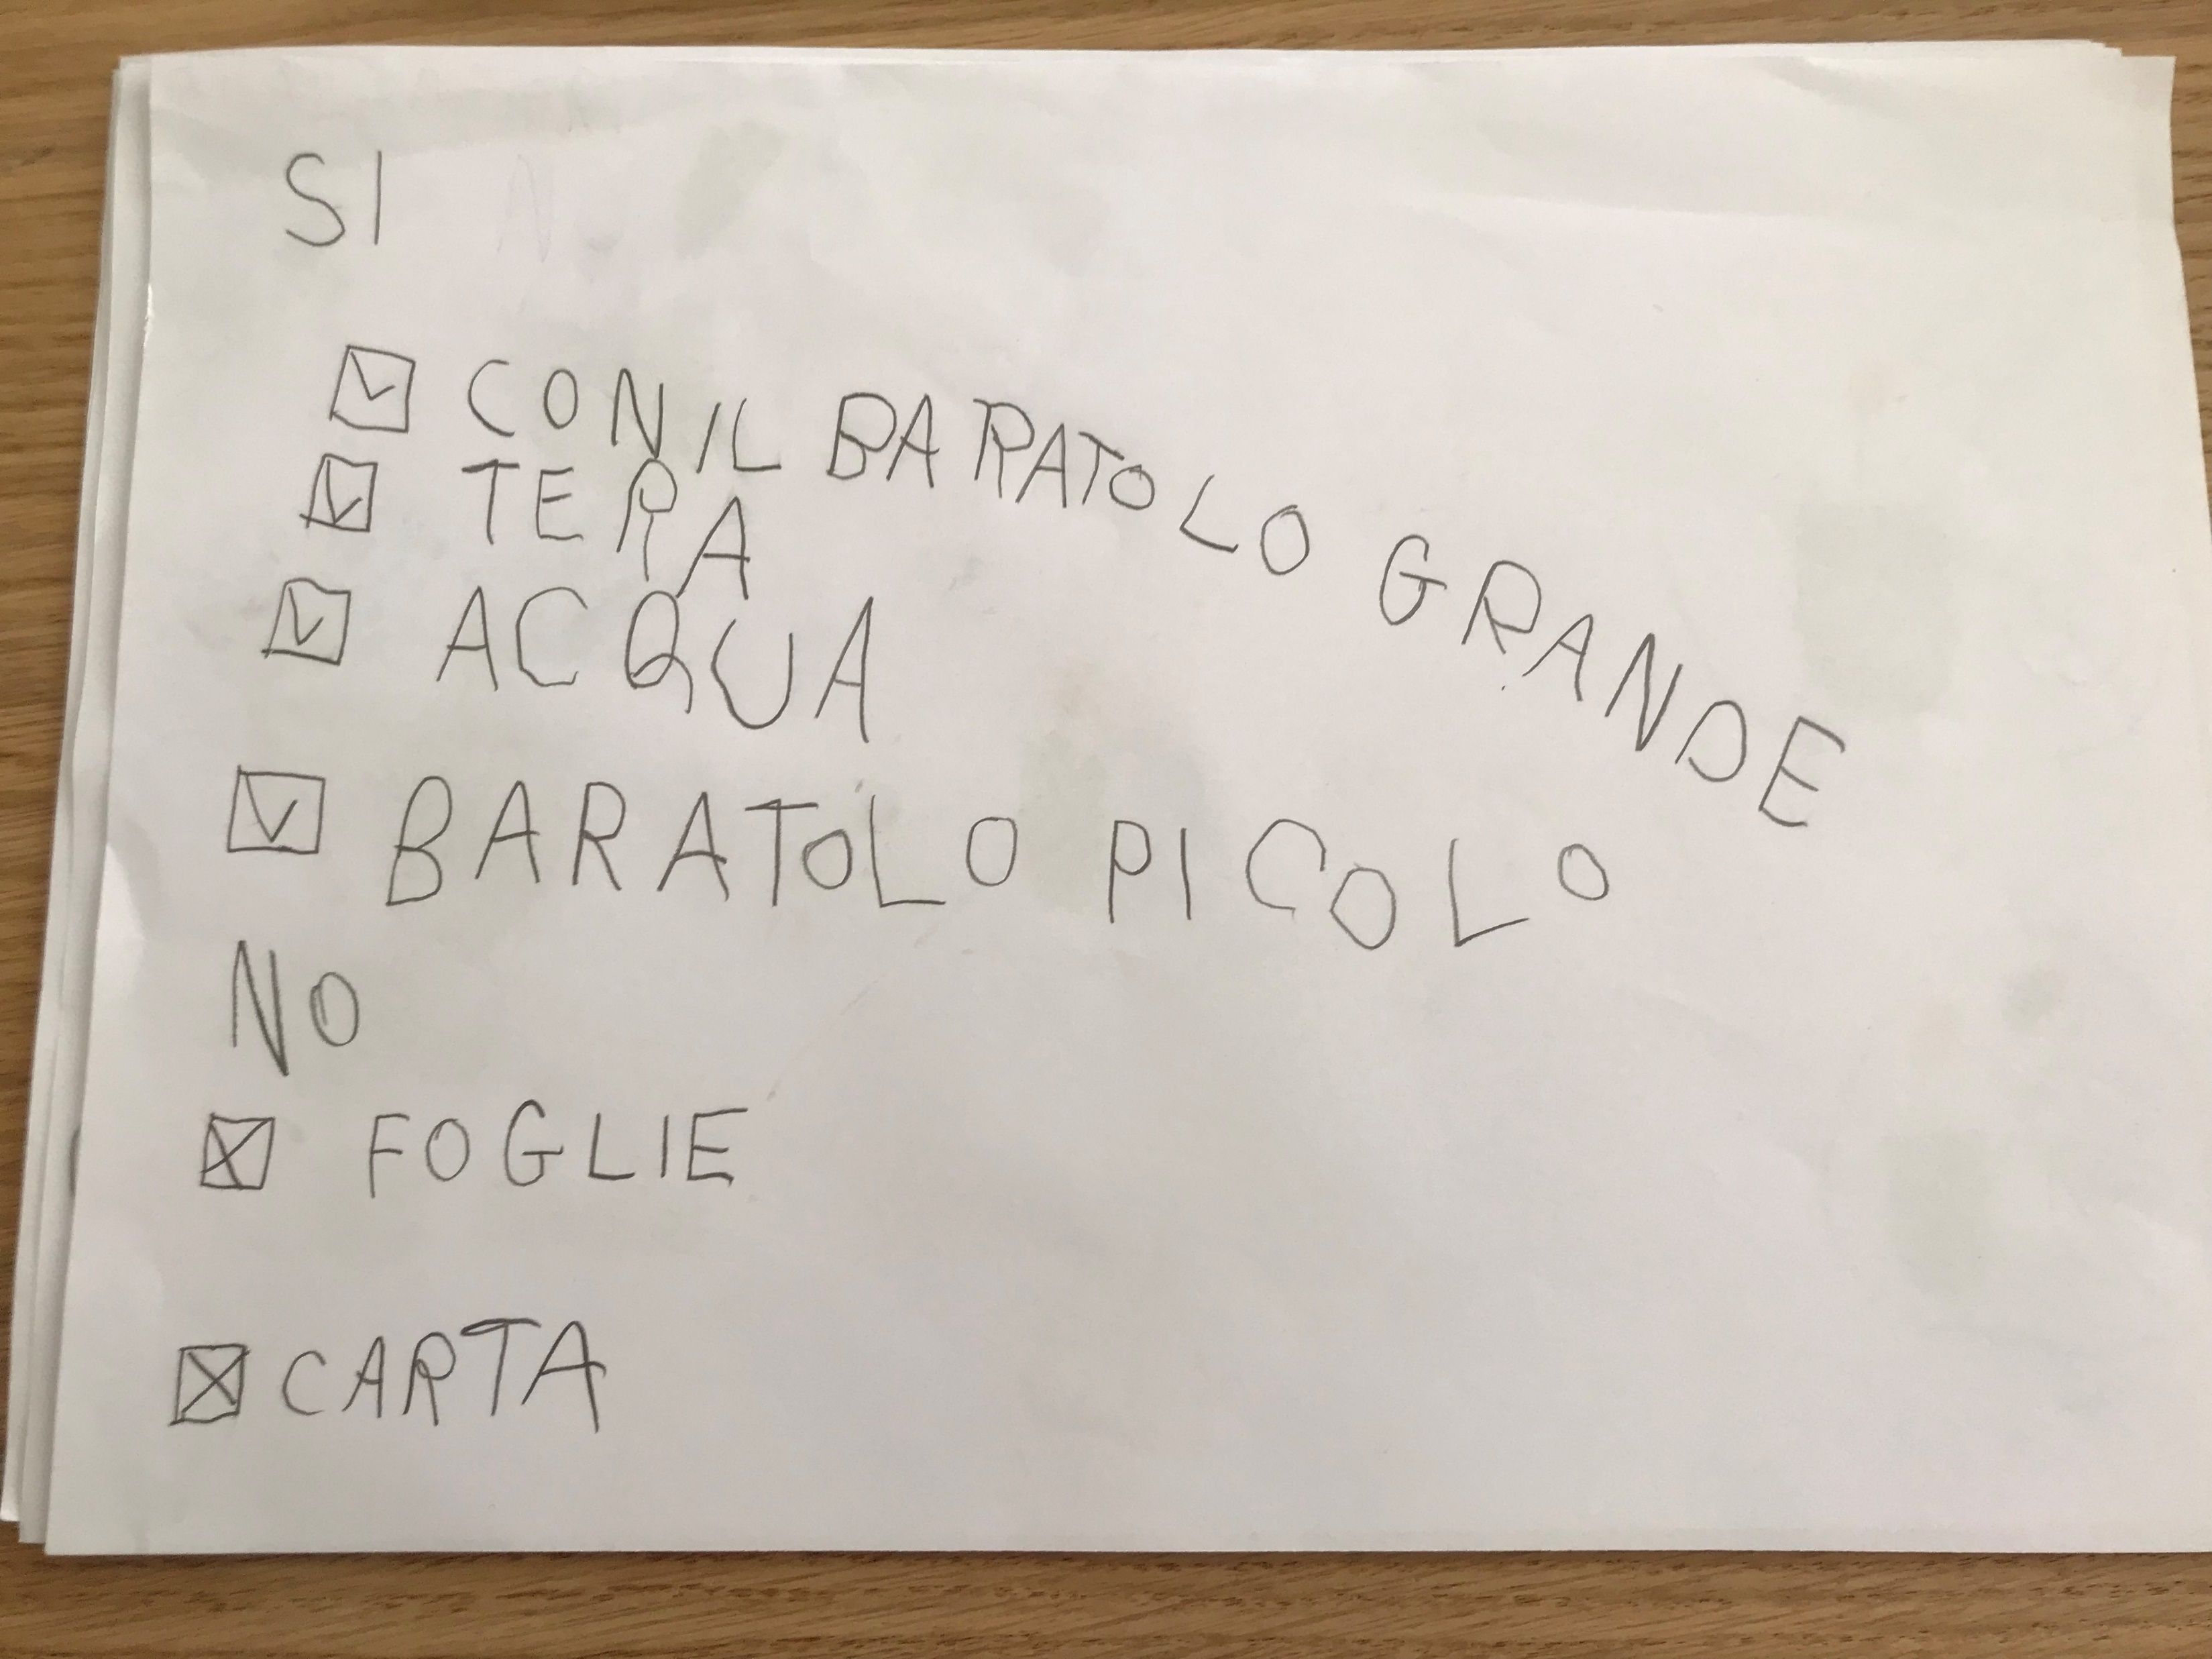 SI
☑ CON IL BARATOLO GRANDE
☑ TERA
☑ ACQUA
☑ BARATOLO PICOLO
NO
☒ FOGLIE
☒ CARTA